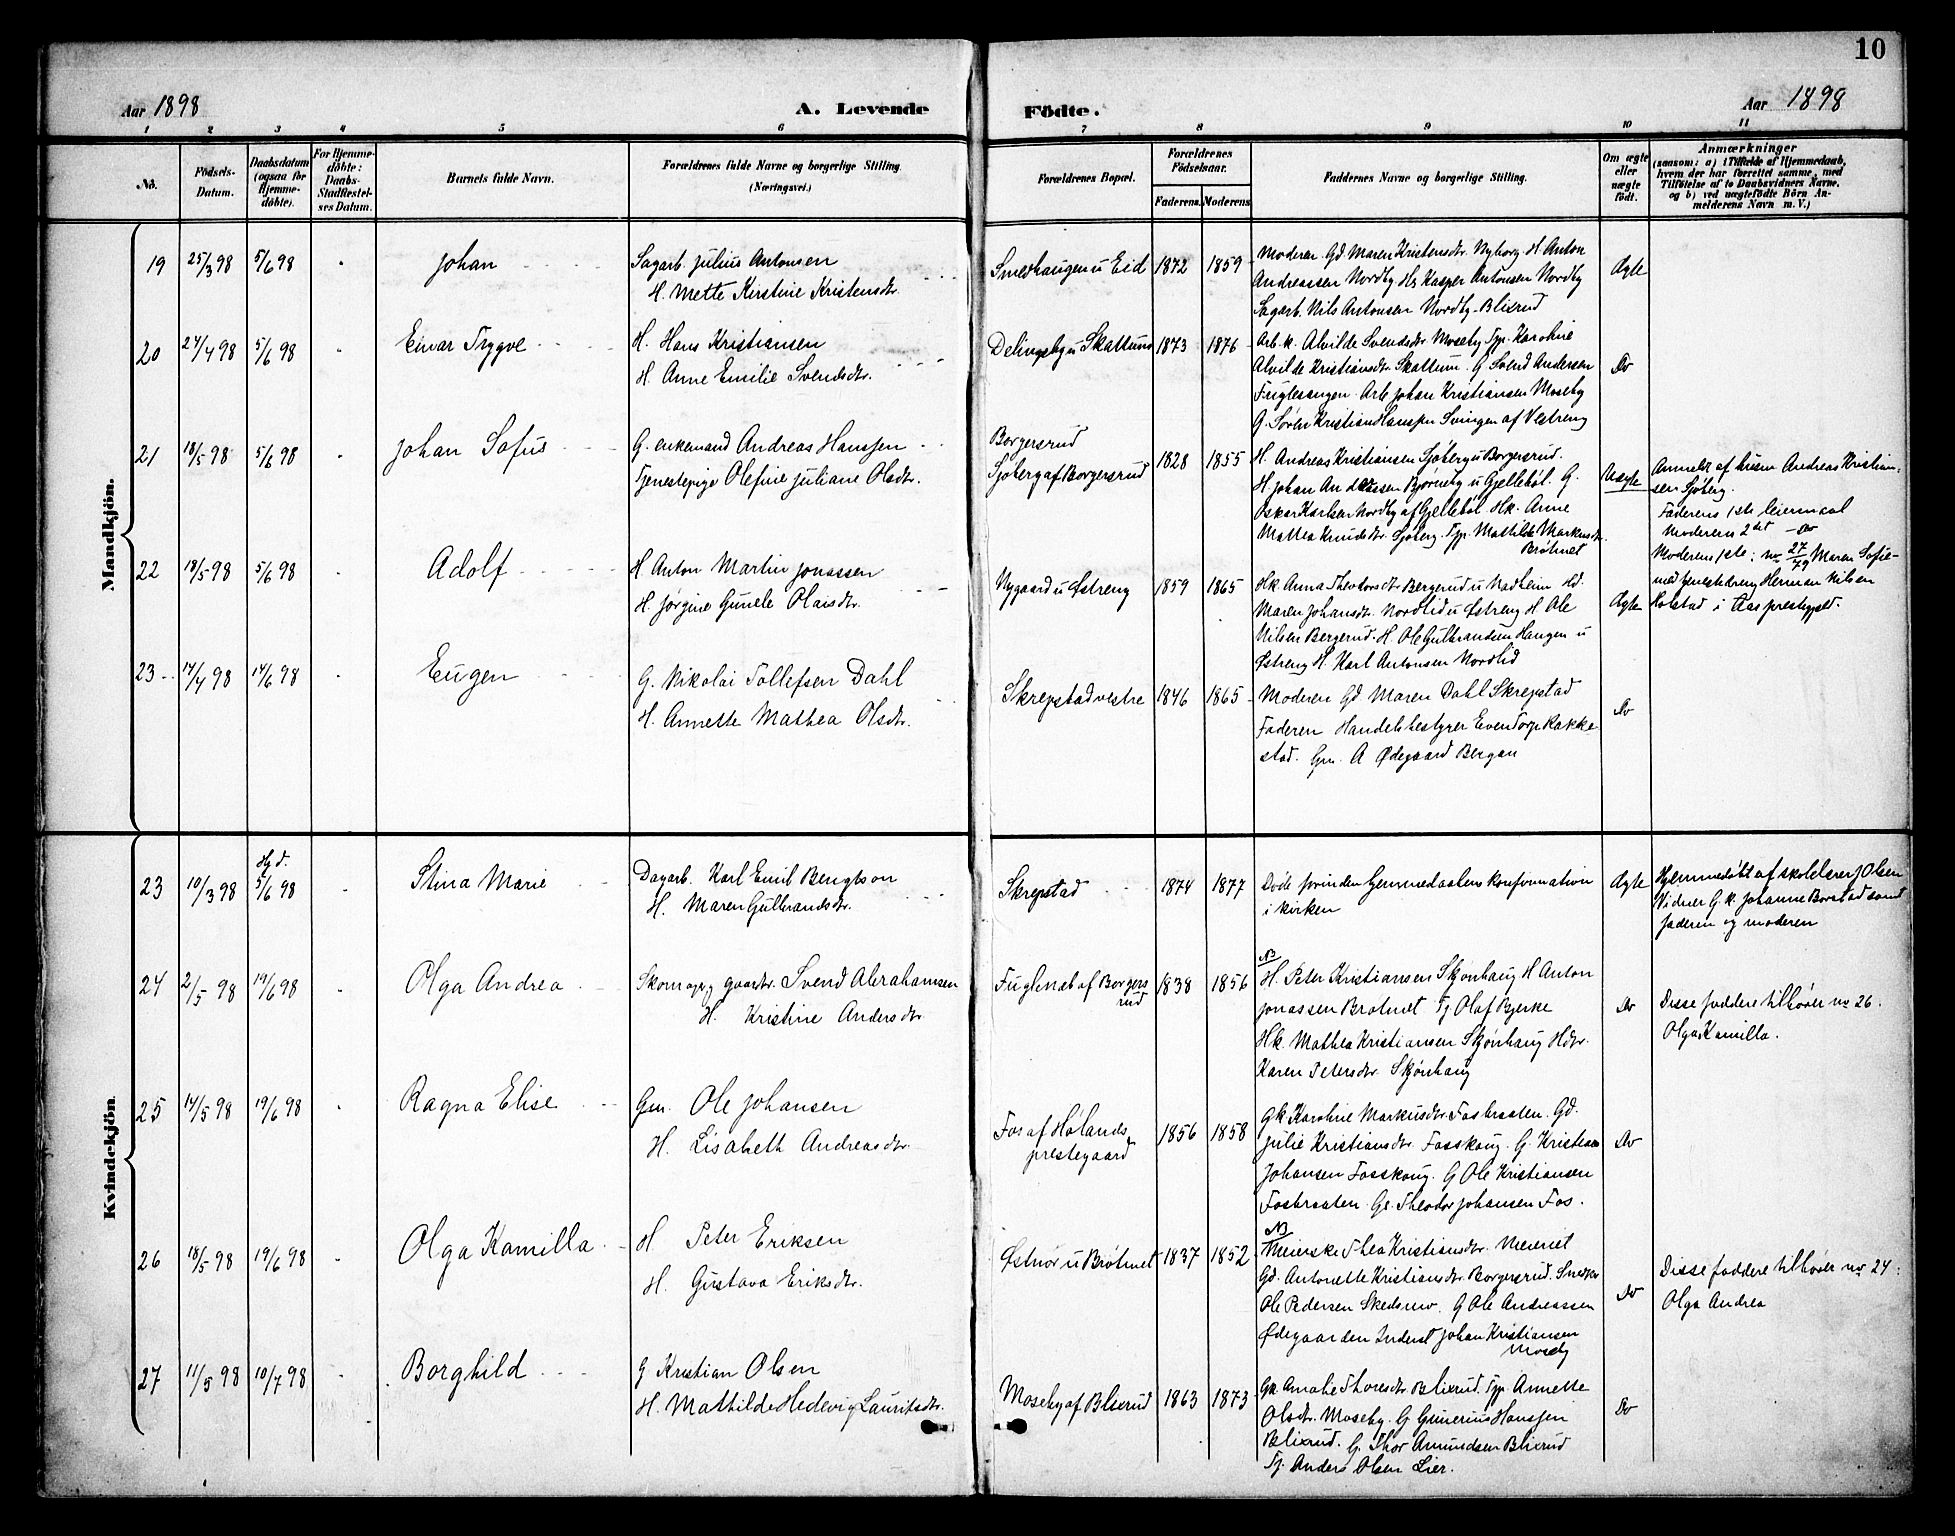 10
Aar 1898
A. Levende
Födte.
Aar 1898
1 2 3 4 5 6 7 8 9 10 11
No.
Födsels-
Datum.
Daabsdatum
(ogsaa for
Hjemme-
döbte).
For Hjemme-
döbte:
Daabs-
Stadfæstel-
ses Datum.
Barnets fulde Navn.
Forældrenes fulde Navne og borgerlige Stilling.
(Næringsvei.)
Forældrenes Bopæl.
Forældrenes
Födselsaar.
Faderens.
Moderens
Faddernes Navne og borgerlige Stilling.
Om ægte
eller
uægte
födt.
Anmærkninger
(saasom: a) i Tilfælde af Hjemmedaab,
hvem der har forrettet samme, med
Tilföielse af to Daabsvidners Navne,
og b) ved uægtefödte Börn An-
melderens Navn m. V.)
Mandkjön.
19 25/3 98 5/6 98 Johan
Sagarb. Julius Antonsen
H. Mette Kirstine Kristensdtr.
Smedhaugen u Eid 1872 1859
Moderen Gd Maren Kristensdtr. Nyborg. H. Anton
Andreassen Nordby. Hs Kasper Antonsen Nordby
Sagarb. Nils Antonsen Nordby-Blixrud
Ægte
20 24/4 98 5/6 98 Einar Trygve
H. Hans Kristiansen
H. Anne Emilie Svendsdtr.
Delingsby u Skattum 1873 1876
Arb.k. Alvilde Svendsdtr Moseby Tp. Karoline
Alvilde Kristiansdtr. Skattum. G Svend Andersen
Fuglesangen. Arb Johan Kristiansen Moseby
G. Sören Kristian Hanssen Svingen af Vestreng
Do
21 18/5 98 5/6 98 Johan Sofus
G. enkemand Andreas Hanssen
Tjenestepige Olefine Juliane Olsdtr.
Borgersrud
Sjöberg af Borgersrud 1828 1855
H. Andreas Kristiansen Sjöberg u Borgersrud.
H. Johan Andreassen Bjørneby u Gjelleböl. G.
Oskar Karlsen Nordby af Gjelleböl Hk. Anne
Mathea Knudsdtr. Sjöberg. Tp. Mathilde Markusdtr.
Bröthnet
Uægte
Anmeldt af husm Andreas Kristian-
sen Sjöberg.
Faderens 1ste leiermaal
Moderens 2det – Do
Moderens 1ste: no 27/79 Maren Sofie
med tjenestedreng Herman Nilsen
Holstad i Aas prestegjeld.
22 18/5 98 5/6 98 Adolf
H Anton Martin Jonassen
H. Jørgine Gunele Olaisdtr.
Nygaard u Østreng 1859 1865
Hk. Anna Theodorsdtr Bergerud u Nadheim Hd.
Maren Johansdtr. Nordlid u Østreng H Ole
Nilsen Bergerud. H. Ole Gulbrandsen Haugen u
Østreng H. Karl Antonsen Nordlid
Ægte
23 14/4 98 14/6 98 Eugen
G. Nikolai Tollefsen Dahl
H. Annette Mathea Olsdtr.
Skrepstad vestre 1846 1865
Moderen Gd Maren Dahl Skrepstad
Faderen Handelsbestyrer Even Torp Rakke-
stad. Gm. A Ødegaard Bergan
Do
Kvindekjön.
23 10/3 98 Hjd. 5/6 98 Stina Marie
Dagarb. Karl Emil Bengtson
H. Maren Gulbrandsdtr.
Skrepstad 1874 1877
Döde forinden hjemmedaabens konfirmation
i kirken
Ægte
Hjemmedöbt af skolelærer J Olsen
Vidner G.k. Johanne Borstad samt
faderen og moderen
24 2/5 98 19/6 98 Olga Andrea
Skomager, gaardbr. Svend Abrahamsen
H. Kristine Andersdtr.
Fuglenæb af Borgers-
rud 1838 1856
NB
H. Peter Kristiansen Skjønhaug H Anton
Jonassen Bråtnet Tj Olaf Bjerke
Hk. Mathea Kristiansen Skjønhaug Hdtr.
Karen Petersdtr Skjønhaug
Do
Disse faddere tilhører no 26.
Olga Kamilla.
25 14/5 98 19/6 98 Ragna Elise
Gm. Ole Johansen
H. Lisabeth Andreasdtr.
Fos af Hølands
prestegaard 1856 1858
Gk Karoline Markusdtr. Fosbraaten. Gd.
Julie Kristiansdtr. Fosskoug. G. Kristian
Johansen Fosskoug. G Ole Kristiansen
Fosbraaten. Gs. Theodor Johansen Fos.
Do
26 18/5 98 19/6 98 Olga Kamilla
H Peter Eriksen
H. Gustava Eriksdtr.
Østnor u Bröthnet 1837 1852
NB
Meierske Thea Kristiansdtr. Meieriet
Gd. Antonette Kristiansdtr. Borgersrud. Snedker
Ole Pedersen Skedsmo. G Ole Andreassen
Ødegaarden Inderst Johan Kristiansen
Moseby
Do
Disse faddere tilhører no 24:
Olga Andrea
27 11/5 98 10/7 98 Borghild
G Kristian Olsen
H. Mathilde Hedevig Lauritsdtr.
Moseby af Blixrud 1863 1873
Gk. Amalie Thoresdtr Blixrud. Tp. Annette
Olsdtr. Moseby. G Gunerius Hanssen
Blixrud. G. Thor Amundsen Blixrud
Tj. Anders Olsen Lier.
Do